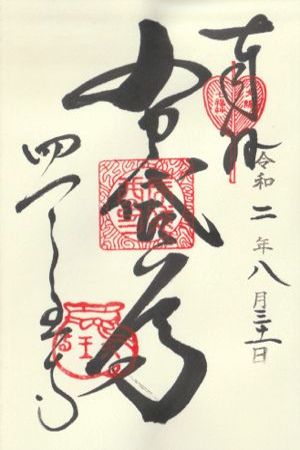 奉拝
令和二年八月三十一日
布袋尊
四天王寺